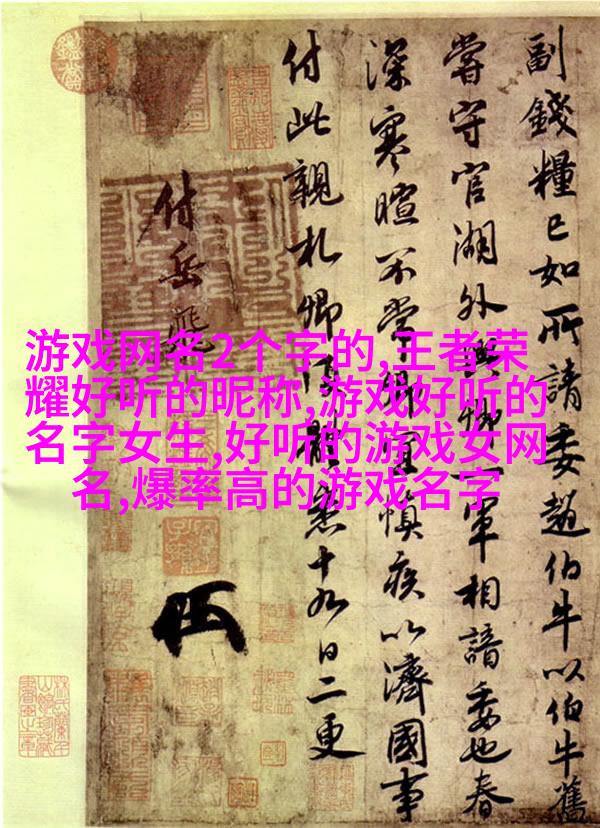 游戏网名2个字的,王者荣
耀好听的昵称,游戏好听的
名字女生,好听的游戏女网
名,爆率高的游戏名字
副錢糧已如所請委趙伯牛以伯牛舊
嘗守官湖外與卿一軍相諳委也春
深寒暄不常卿宜慎疾以濟國事
付此親札卿須體悉十九日二更
付岳飛